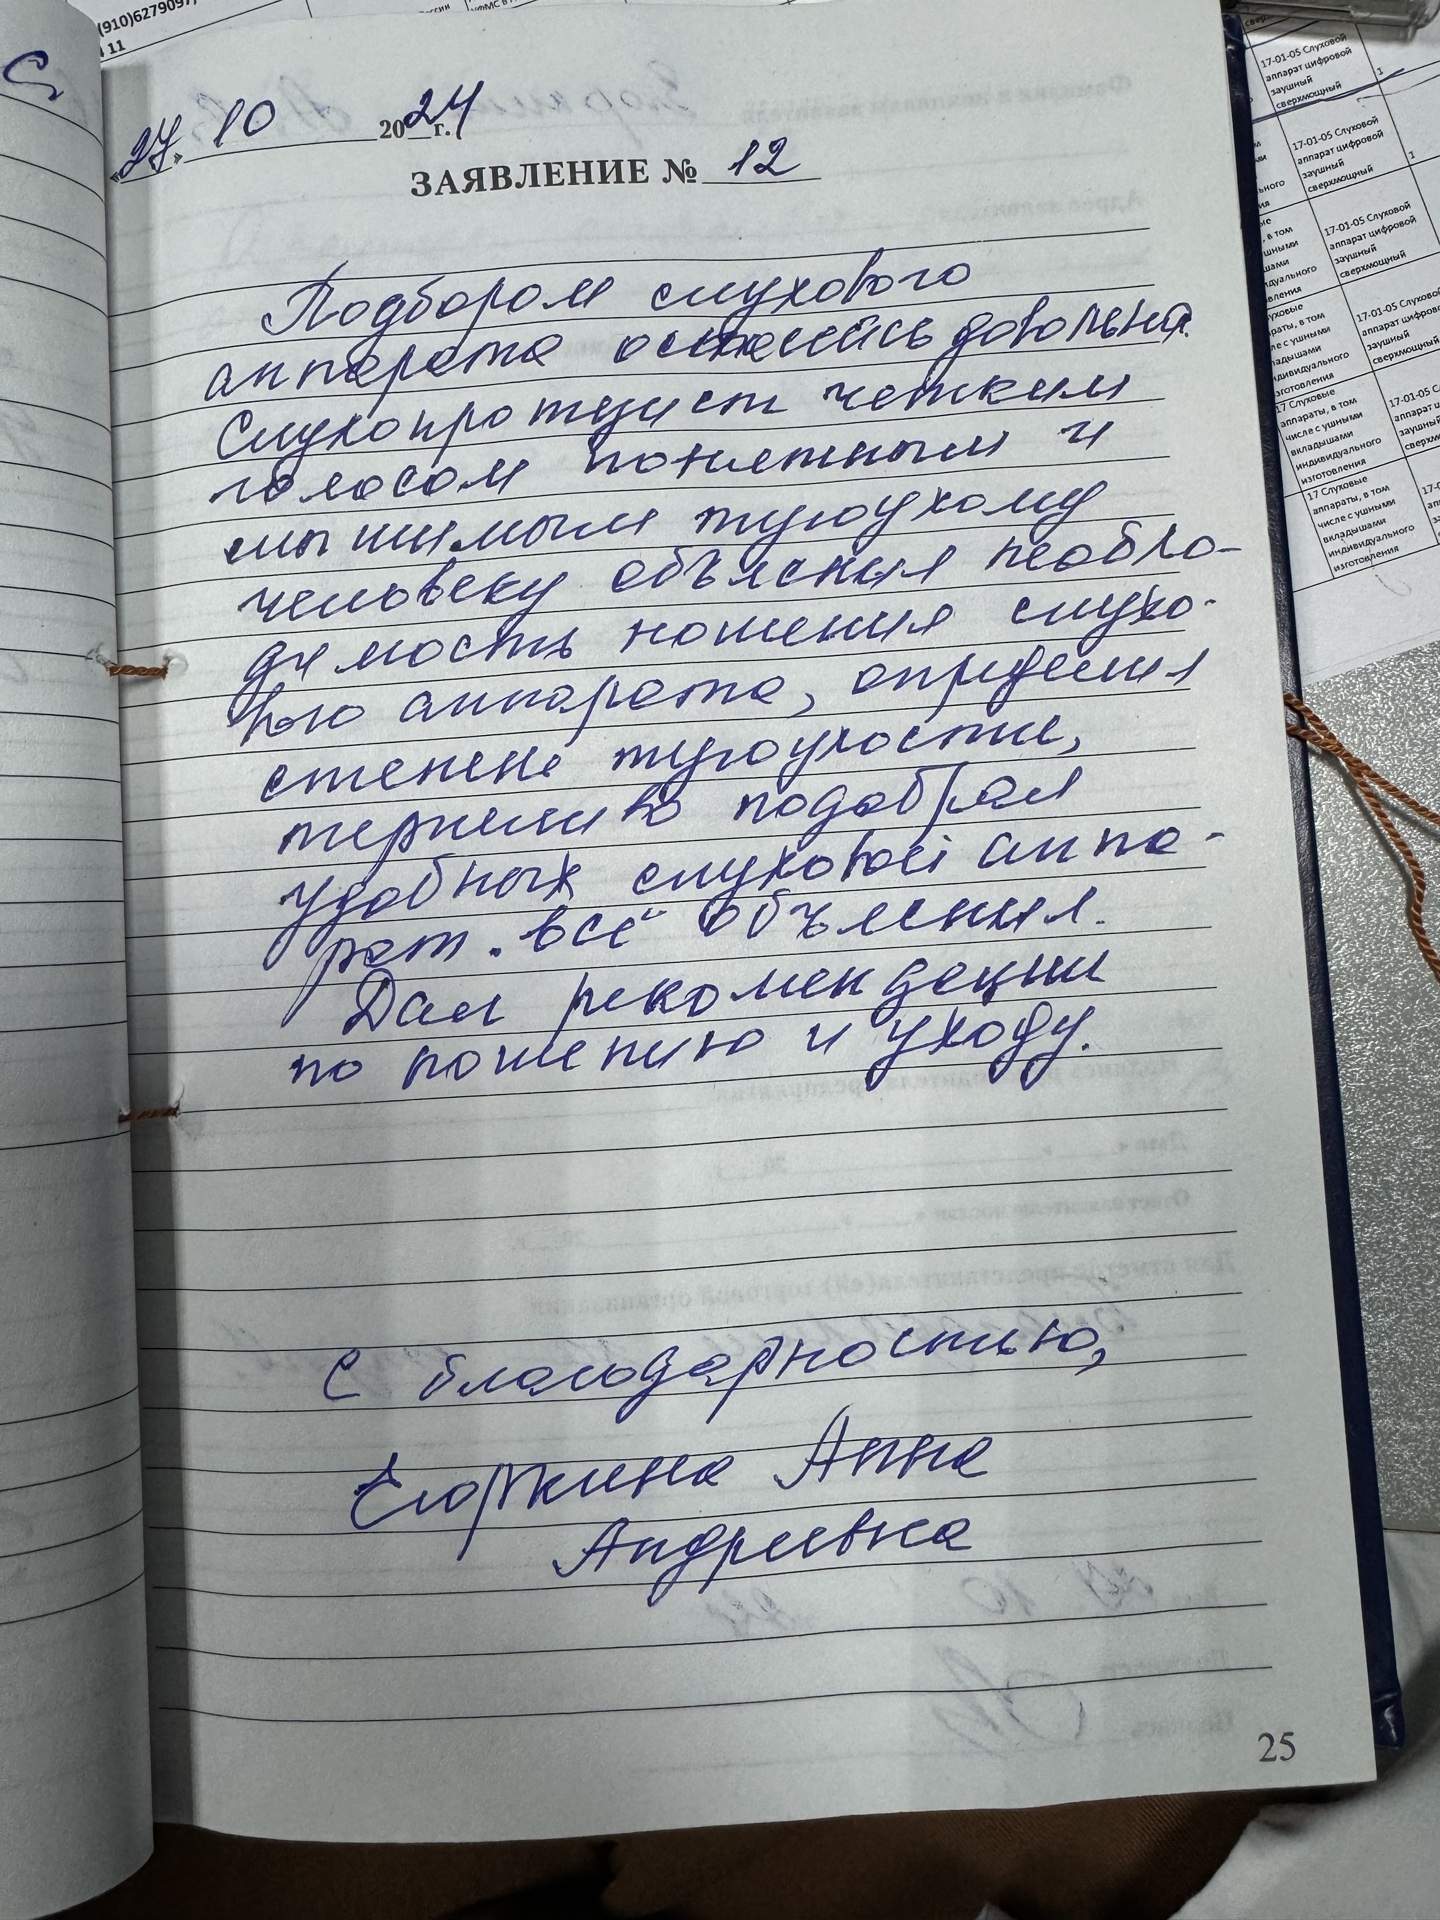 (910)6279097,
11
«27» 10 2024 г.
ЗАЯВЛЕНИЕ № 12
Подбором слухового
аппарата осталась довольна.
Слухопротезист четким
голосом понятным и
слышимым тугоухому
человеку объяснил необхо-
димость ношения слухо-
вого аппарата, определил
степень тугоухости,
терпеливо подобрал
удобных слуховой аппа-
рат. всё объяснил.
Дал рекомендации
по ношению и уходу.
С благодарностью,
Егоркина Анна
Андреевна
25
17-01-05 Слуховой
аппарат цифровой
заушный
сверхмощный
1
17-01-05 Слуховой
аппарат цифровой
заушный
сверхмощный
1
17-01-05 Слуховой
аппарат цифровой
заушный
сверхмощный
17-01-05 Слуховой
аппарат цифров
заушный
сверхмощный
17 Слуховые
аппараты, в том
числе с ушными
вкладышами
индивидуального
изготовления
17 Слуховые
аппараты, в том
числе с ушными
вкладышами
индивидуального
изготовления